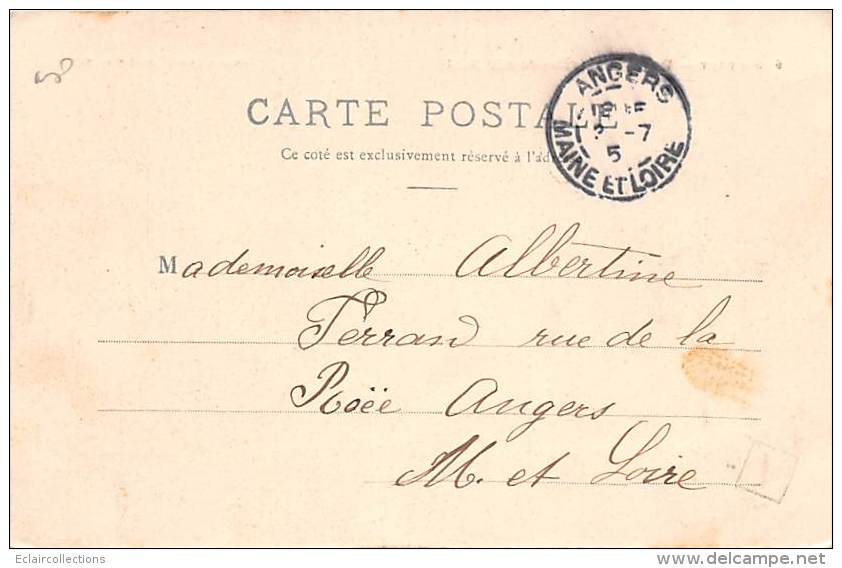 CARTE POSTALE
ANGERS
-7
5
MAINE ET LOIRE
Ce coté est exclusivement réservé à l'ad
Mademoiselle Albertine
Ferrand rue de la
Roëe Angers
M. et Loire
Eclaircollections
www.delcampe.net